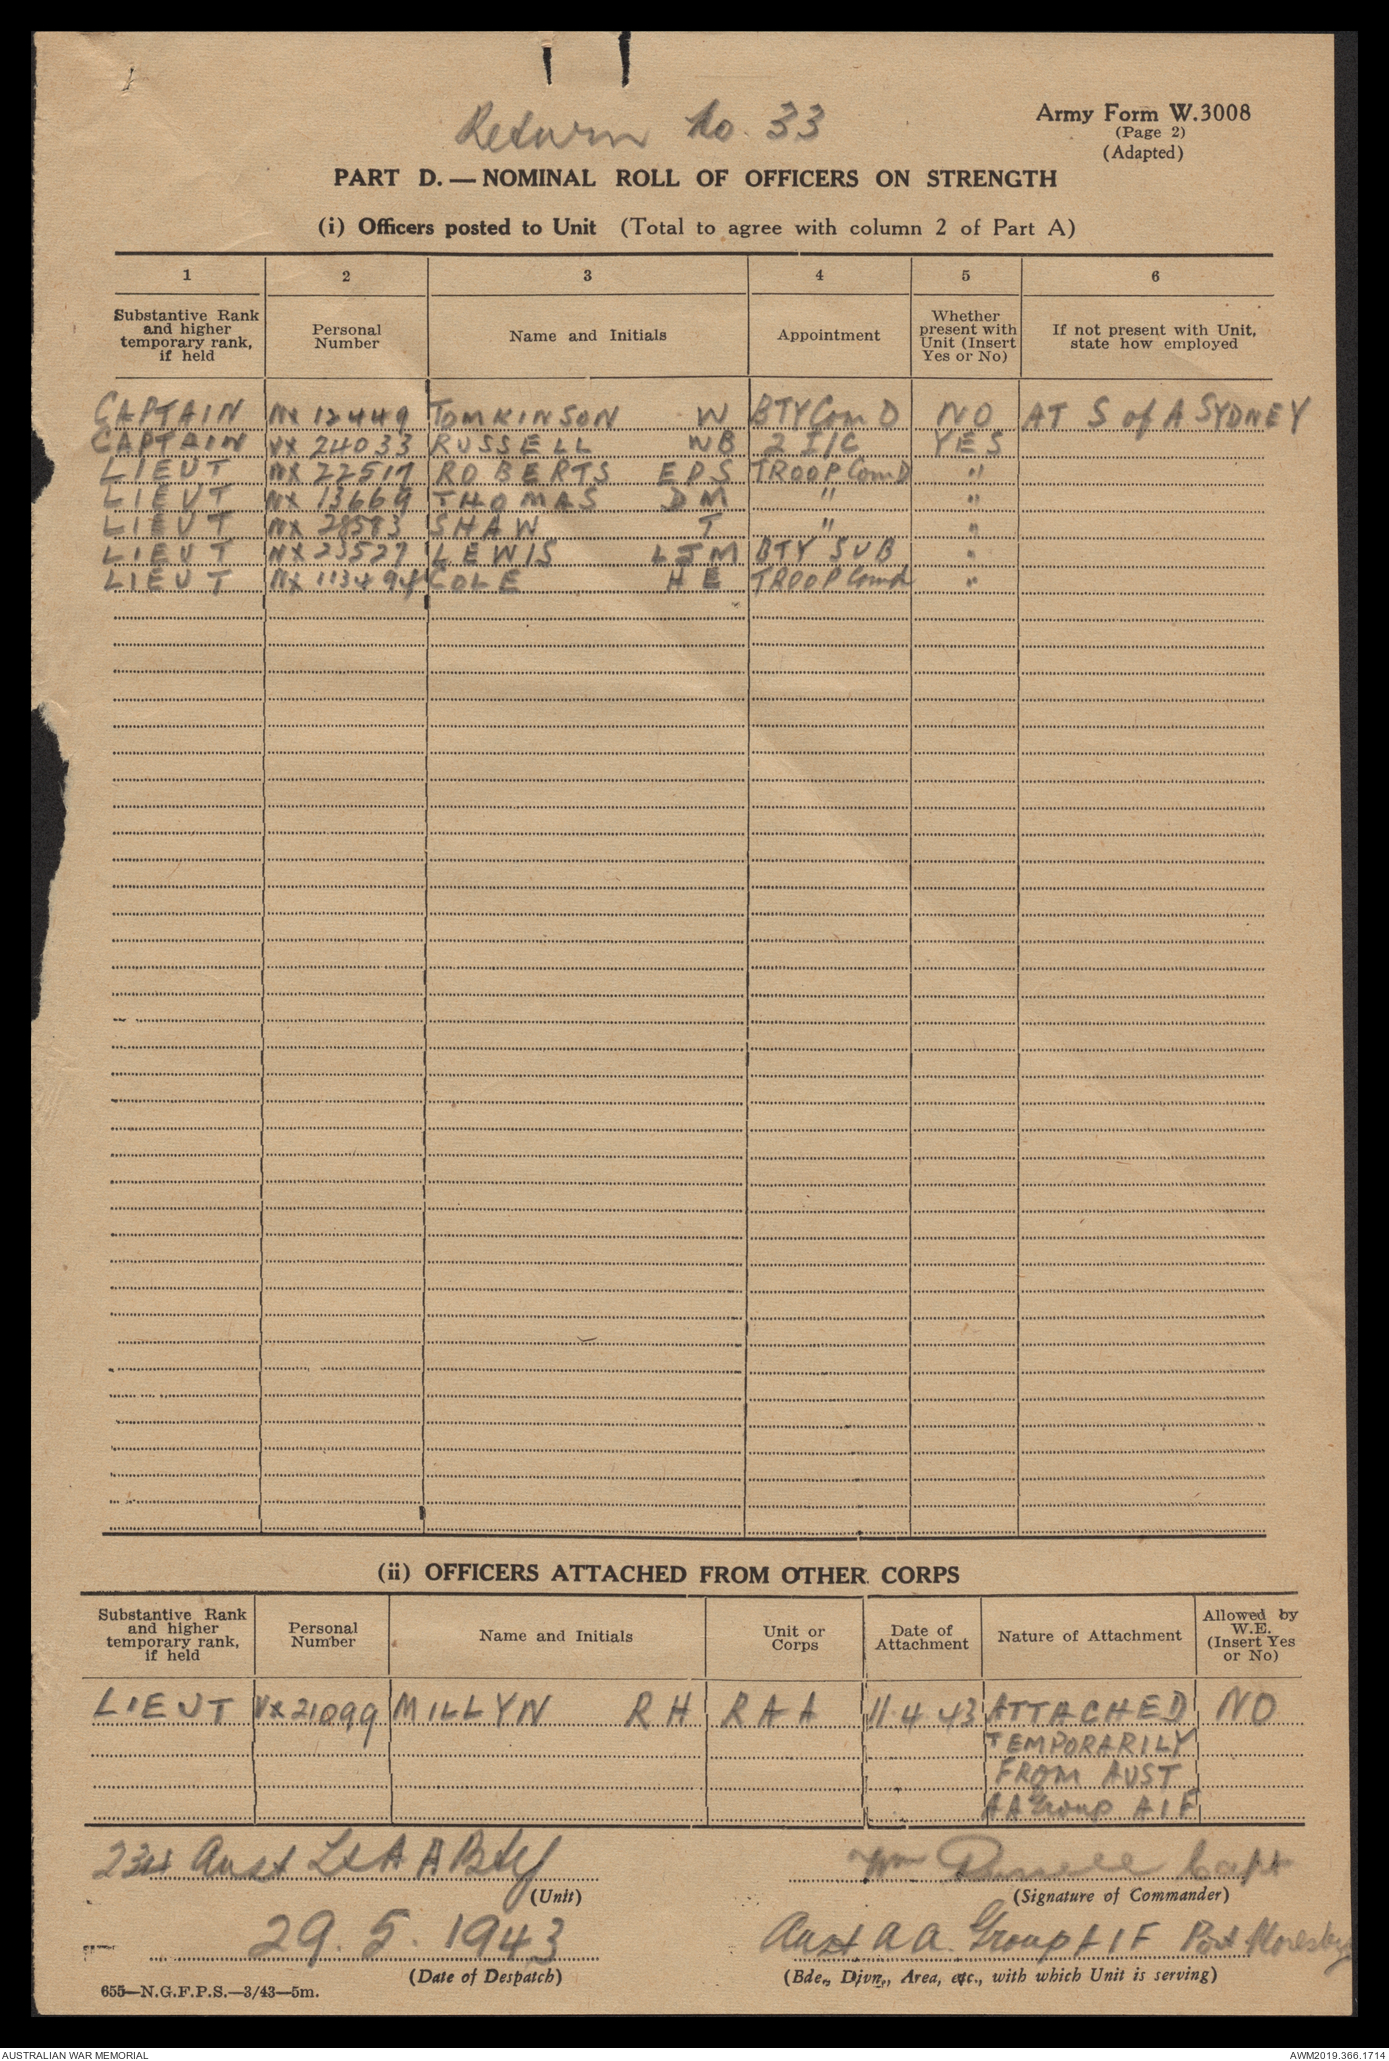 Return No. 33
Army Form W.3008
(Page 2)
(Adapted)
PART D. — NOMINAL ROLL OF OFFICERS ON STRENGTH
(i) Officers posted to Unit (Total to agree with column 2 of Part A)
1 2 3 4 5 6
Substantive Rank and higher temporary rank, if held
Personal Number
Name and Initials
Appointment
Whether present with Unit (Insert Yes or No)
If not present with Unit, state how employed
CAPTAIN NX 12449 TOMKINSON W BTY ComD NO AT S of A SYDNEY
CAPTAIN VX 24033 RUSSELL WB 2 I/C YES
LIEUT NX 22517 ROBERTS EPS TROOP ComD "
LIEUT NX 13669 THOMAS DM " "
LIEUT NX 28583 SHAW T " "
LIEUT NX 23527 LEWIS LJM BTY SUB "
LIEUT NX 113494 COLE HE TROOP Comd "
(ii) OFFICERS ATTACHED FROM OTHER CORPS
Substantive Rank and higher temporary rank, if held
Personal Number
Name and Initials
Unit or Corps
Date of Attachment
Nature of Attachment
Allowed by W.E. (Insert Yes or No)
LIEUT VX21099 MILLYN RH RAA 11.4.43 ATTACHED NO
TEMPORARILY
FROM AUST
AA Group AIF
234 Aust Lt A A Bty
(Unit)
Wm Russell Capt
(Signature of Commander)
29. 5. 1943
(Date of Despatch)
Aust AA. Group AIF Port Moresby
(Bde., Divn., Area, etc., with which Unit is serving)
655—N.G.F.P.S.—3/43—5m.
AUSTRALIAN WAR MEMORIAL
AWM2019.366.1714